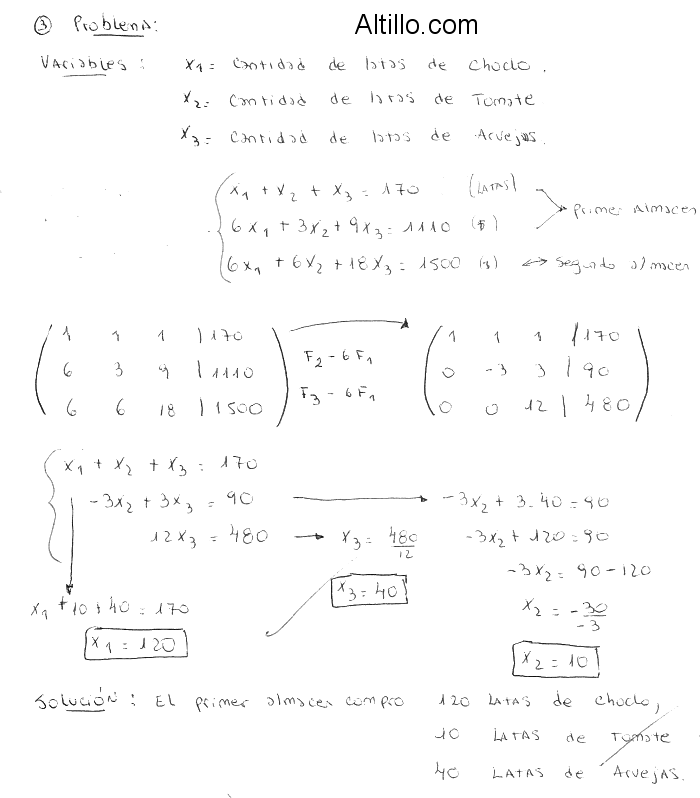 Altillo.com
③ Problema:
Variables: x1 = Cantidad de latas de Choclo.
x2 = Cantidad de latas de Tomate
x3 = Cantidad de latas de Arvejas.
x1 + x2 + x3 = 170 (LATAS)
Primer Almacen
6x1 + 3x2 + 9x3 = 1110 ($)
6x1 + 6x2 + 18x3 = 1500 ($) ↔ Segundo almacen
1 1 1 | 170 → 1 1 1 | 170
6 3 9 | 1110 F2 - 6F1 0 -3 3 | 90
6 6 18 | 1500 F3 - 6F1 0 0 12 | 480
x1 + x2 + x3 = 170
-3x2 + 3x3 = 90 → -3x2 + 3.40 = 90
12x3 = 480 → x3 = 480/12 -3x2 + 120 = 90
x3 = 40 -3x2 = 90 - 120
x1 + 10 + 40 = 170 x2 = -30/-3
x1 = 120
x2 = 10
Solución: El primer almacen compro 120 LATAS de choclo,
10 LATAS de Tomate
40 LATAS de Arvejas.